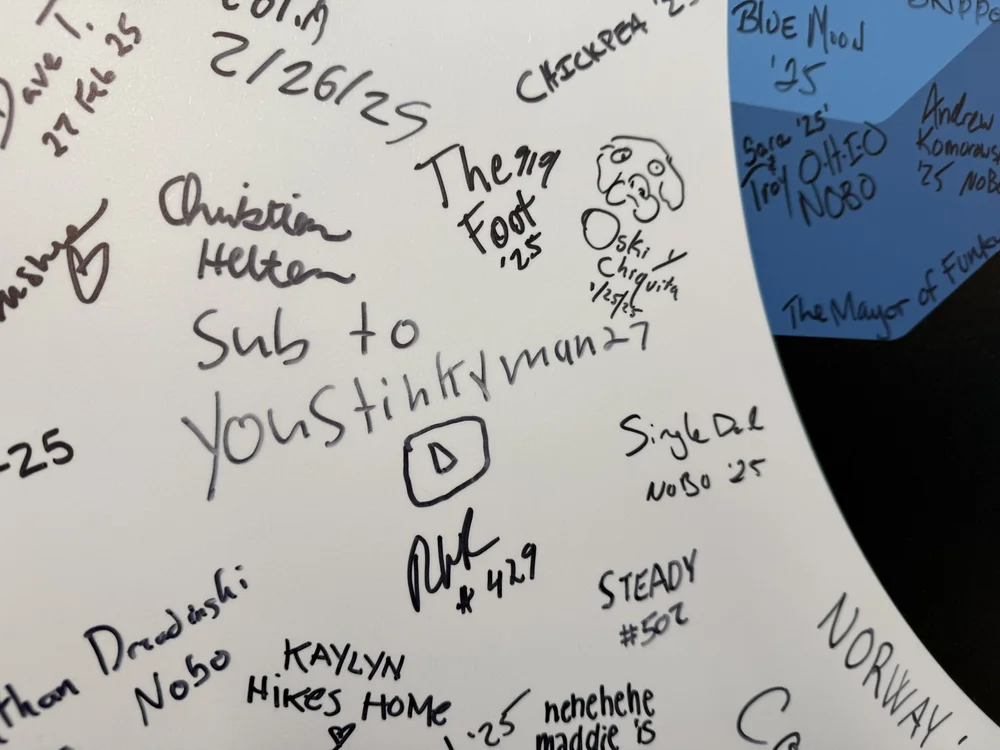 Dave T.
27 Feb 25
2/26/25
CHICKPEA '25
BLUE MOOD
'25
Sara '25'
&
Troy O.H.I.O
NOBO
Andrew
'25 NOBO
The Mayor of
The 919
Foot
'25
Oski y
Chiquita
1/25/25
Christian
Helten
Sub to
YouStinkyman27
-25
Single Dad
NOBO '25
#429
STEADY
#502
Nobo
KAYLYN
HIKES HOME
'25
nehehehe
maddie is
NORWAY